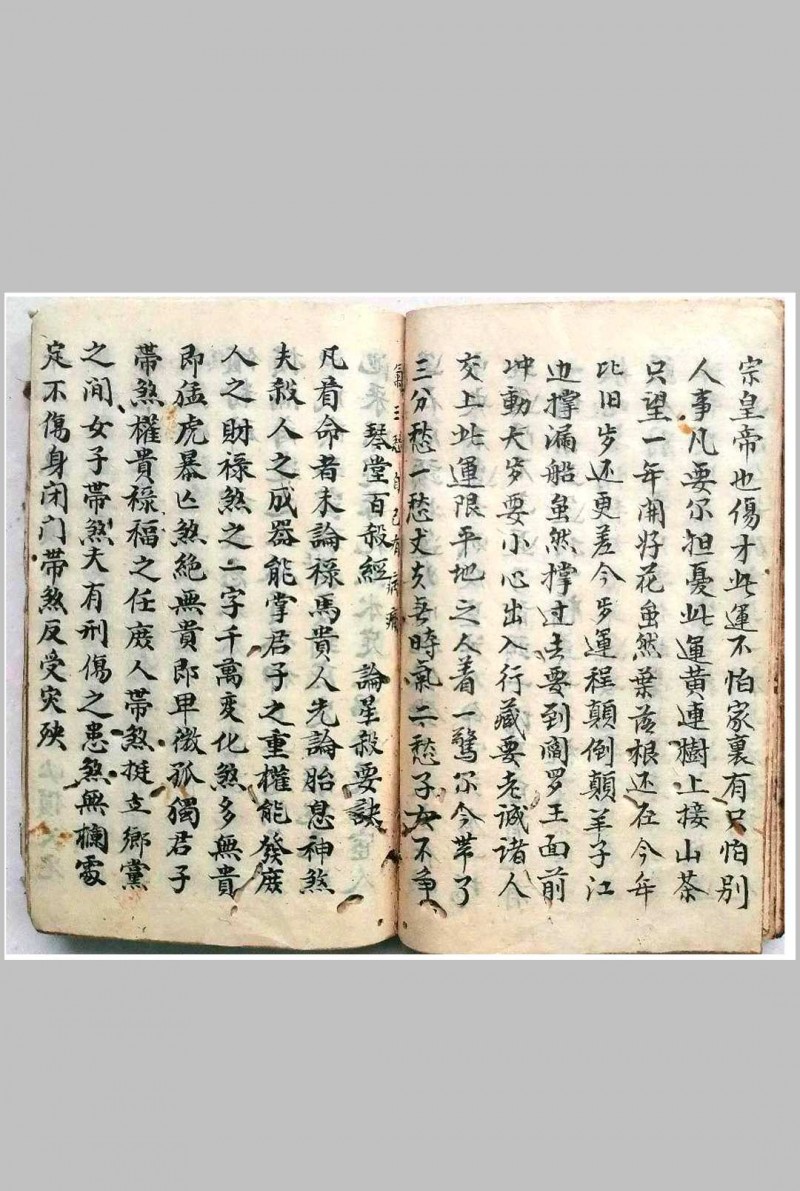 宗皇帝也傷才此運不怕家裏有只怕别
人事凡要尔担憂此運黄連樹上接山茶
只望一年開好花虽然葉落根还在今年
比旧步还更差今步運程顛倒顛羊子江
边撑漏船虽然撑过去要到阎罗王面前
冲動大岁要小心出入行藏要老诚诸人
交上此運限平地之人着一驚尔今带了
三分愁一愁丈夫吾時氣二愁子女不争
氣三愁自己有病痛
琴堂百殺經 論星殺要訣
凡看命者未論禄馬貴人先論胎息神煞
夫殺人之成器能掌君子之重權能發庶
人之財禄煞之一字千萬变化煞多無貴
即猛虎暴亡煞絶無貴即甲微孤獨君子
帶煞權貴禄福之任庶人帶煞挺立鄉黨
之间女子帶煞夫有刑傷之患煞無欄處
定不傷身闭门帶煞反受灾殃